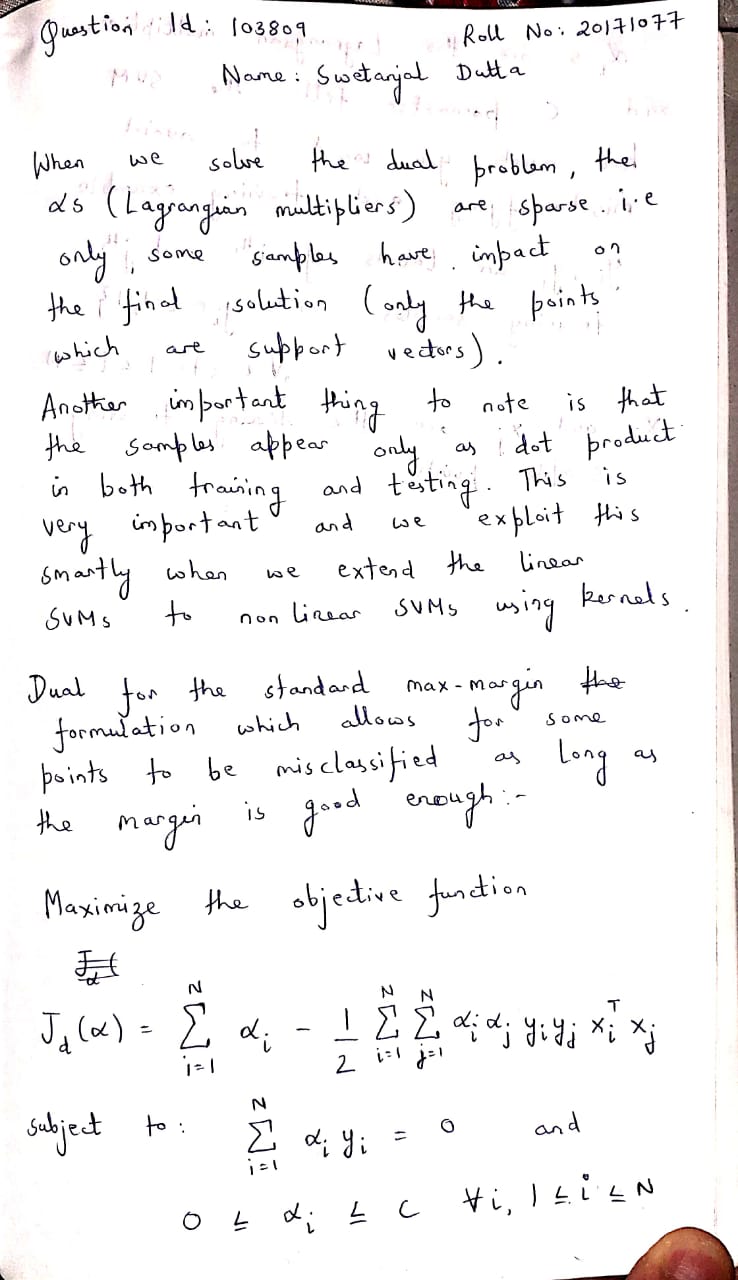 Question Id: 103809 Roll No: 20171077
Name: Swetanjal Dutta
When we solve the dual problem, the
αs (Lagrangian multipliers) are sparse i.e
only some samples have impact on
the final solution (only the points
which are support vectors).
Another important thing to note is that
the samples appear only as dot product
in both training and testing. This is
very important and we exploit this
smartly when we extend the linear
SVMs to non linear SVMs using kernels.
Dual for the standard max-margin the
formulation which allows for some
points to be misclassified as long as
the margin is good enough:-
Maximize the objective function
J_d(α) = Σ_{i=1}^{N} α_i - 1/2 Σ_{i=1}^{N} Σ_{j=1}^{N} α_i α_j y_i y_j x_i^T x_j
subject to: Σ_{i=1}^{N} α_i y_i = 0 and
0 ≤ α_i ≤ C ∀i, 1 ≤ i ≤ N